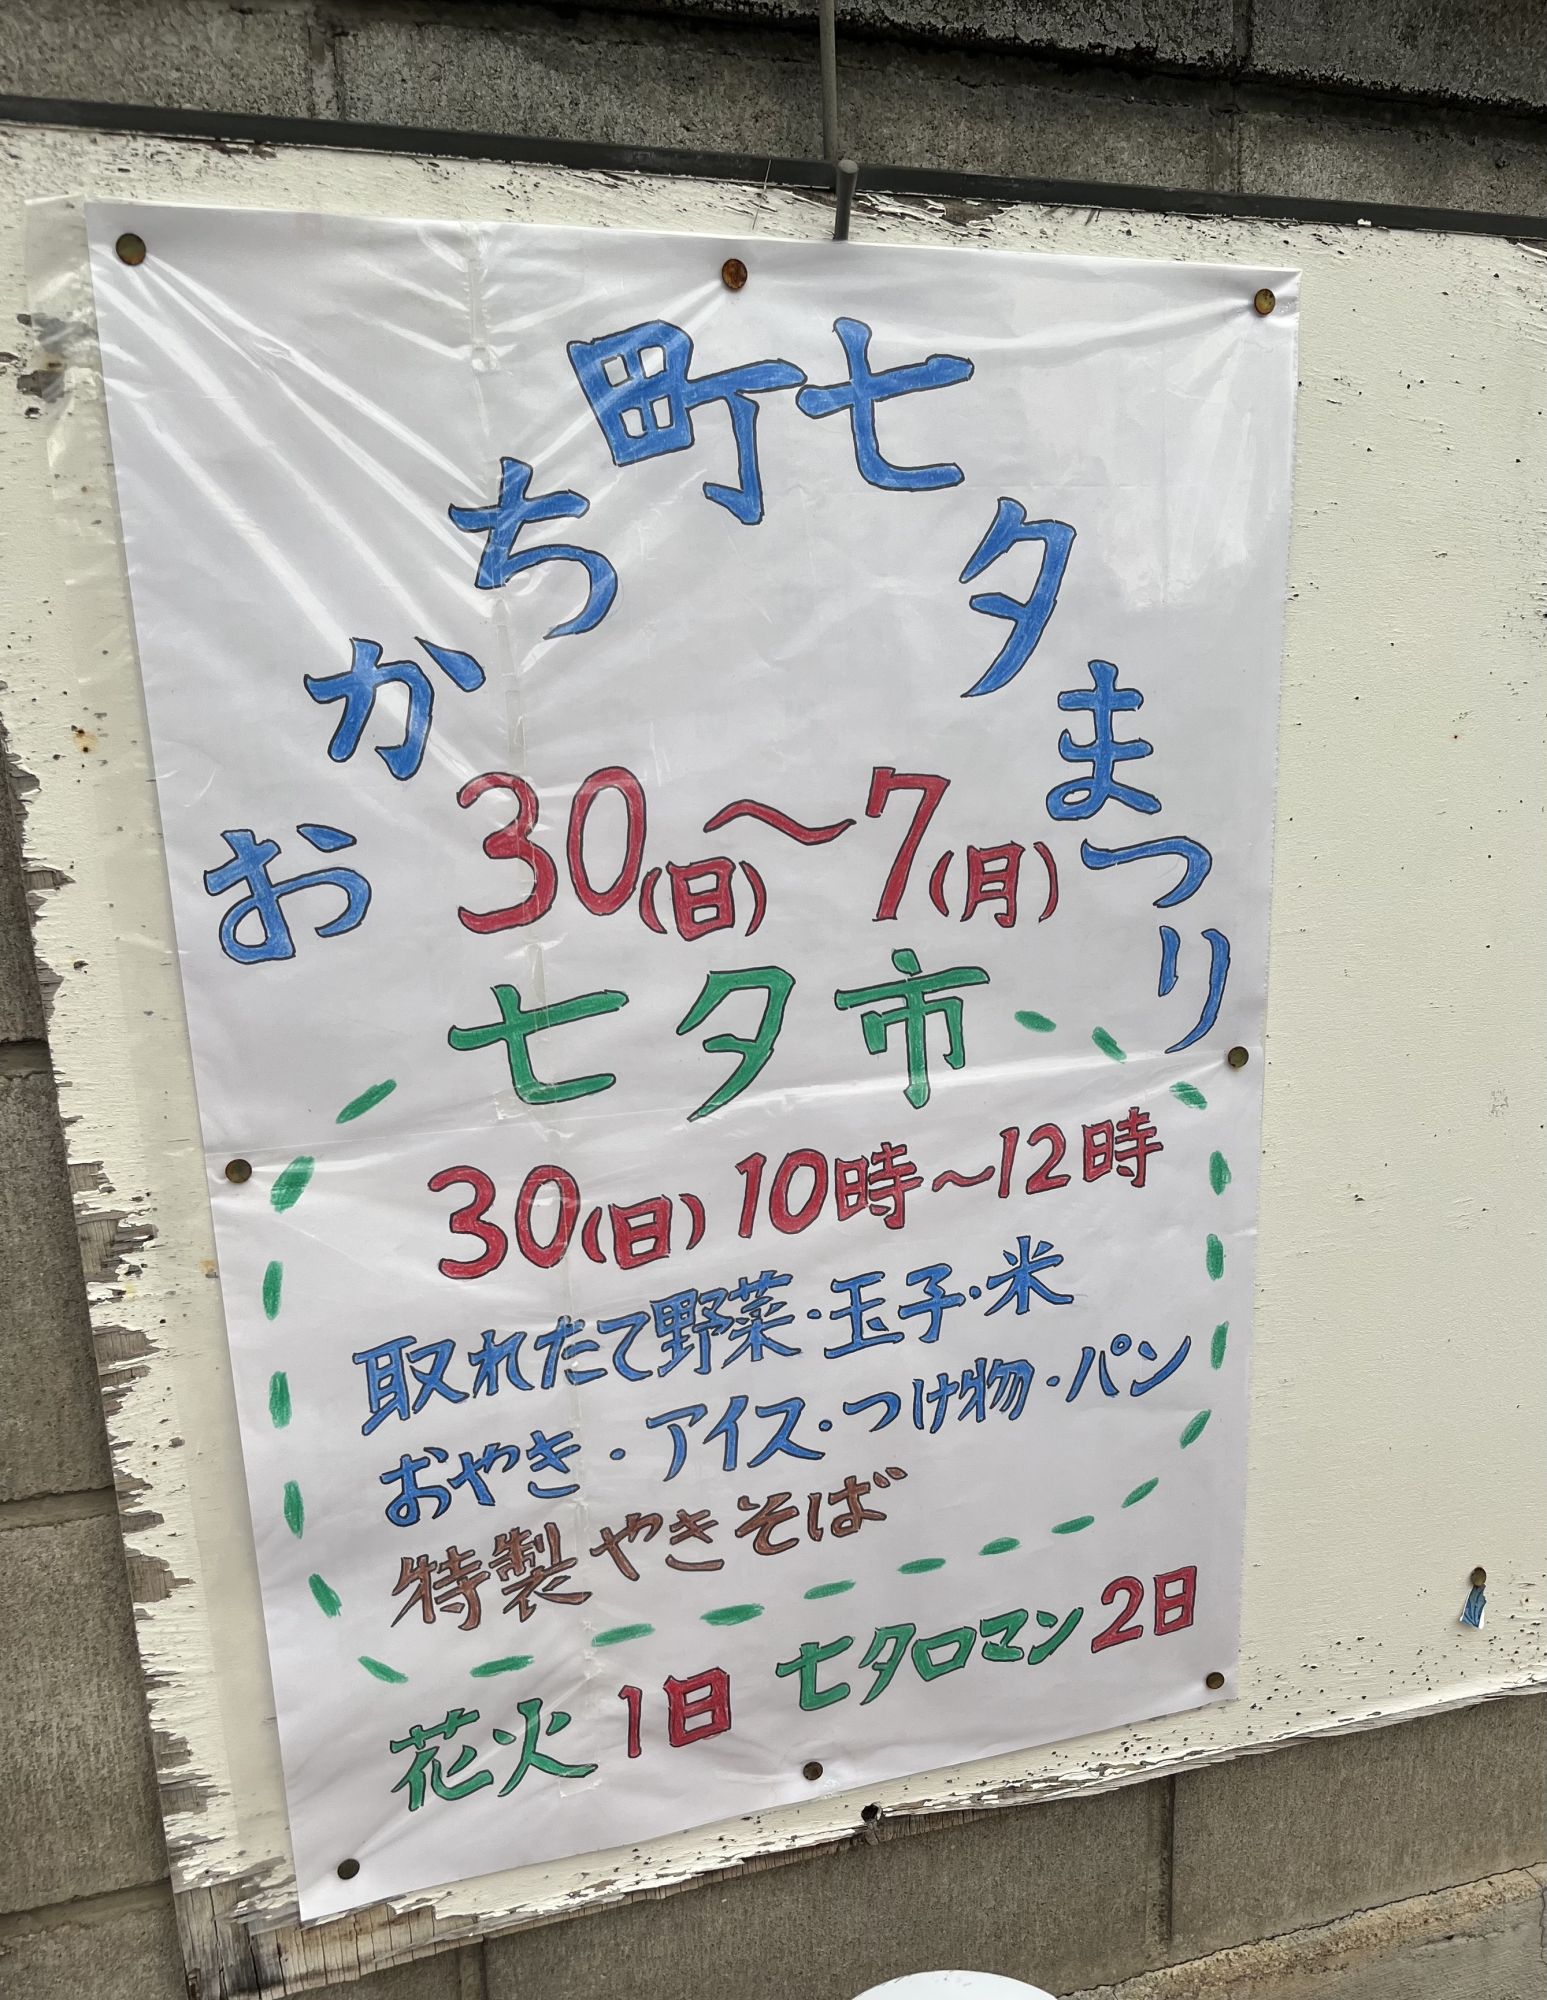 おかち町七夕まつり
30(日)～7(月)
七夕市
30(日)10時～12時
取れたて野菜・玉子・米
おやき・アイス・つけ物・パン
特製やきそば
花火1日 七夕ロマン2日